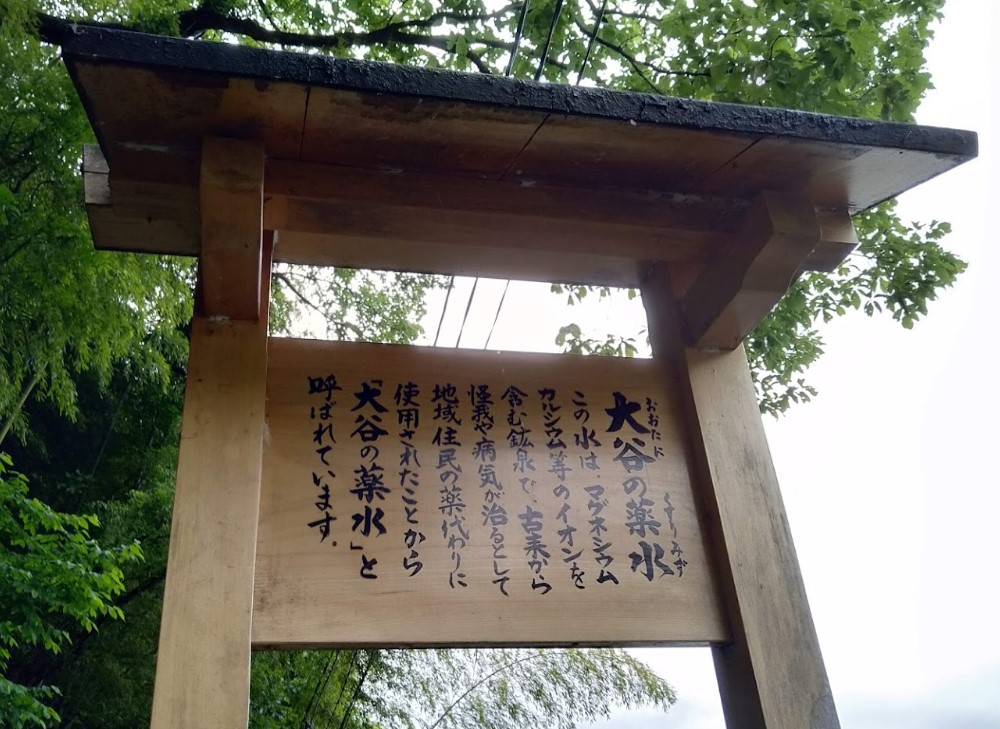 大谷の薬水
おおたに
くすりみず
この水は、マグネシウム
カルシウム等のイオンを
含む鉱泉で、古来から
怪我や病気が治るとして
地域住民の薬代わりに
使用されたことから
「大谷の薬水」と
呼ばれています。